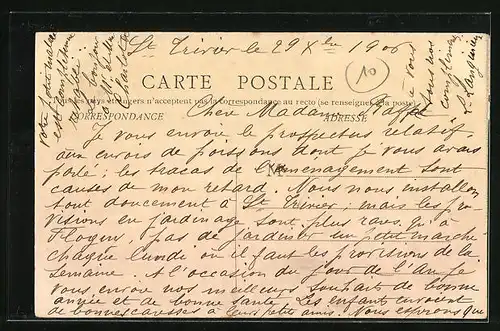 St Trivier le 29 Xbre 1906
CARTE POSTALE
pays étrangers n'acceptent pas la correspondance au recto (se renseigner à la poste)
CORRESPONDANCE ADRESSE
Chère Madame
Je vous envoie le prospectus relatif
aux envois de poissons dont je vous avais
parlé; les tracas de l'aménagement sont
causes de mon retard. Nous nous installons
tout doucement à St Trivier; mais les pro
visions en jardinage sont plus rares qu'à
pas de jardinier un petit marché
chaque lundi où il faut les provisions de la
semaine. A l'occasion du jour de l'an je
vous envoie nos meilleurs souhaits de bonne
année et de bonne santé. Les enfants envoient
de bonnes caresses à leurs petits amis. Nous espérons que
votre petit malade
est complètement
bonjour
à vous
tous nos
compliments
10